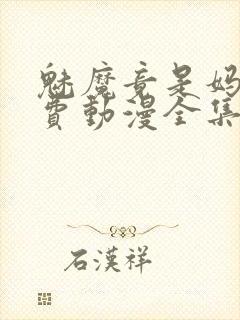 魅魔竟是妈
费动漫全集
石漢祥